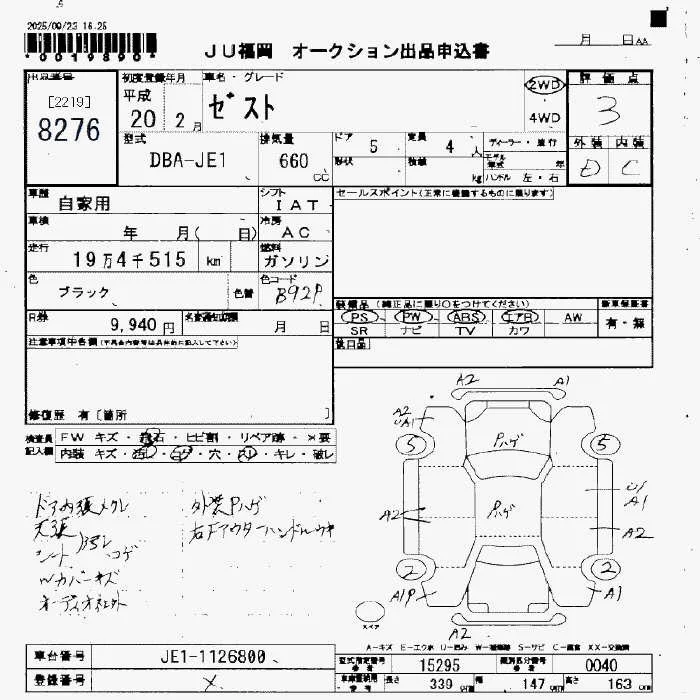 2025/09/23 16:25
*0019890*
JU福岡 オークション出品申込書
月 日AA
出品番号
[2219]
8276
初度登録年月
平成
20 2月
車名・グレード
ゼスト
2WD
4WD
評価点
3
型式
DBA-JE1
排気量
660
CC
ドア 5
定員 4 人
形状
積載 kg
ディーラー・並行
モデル年式 年
ハンドル 左・右
外装 内装
D C
車歴
自家用
シフト
IAT
セールスポイント(正常に機能するものに限ります)
車検
年 月( 日)
冷房
AC
走行
19万4千515 km
燃料
ガソリン
色
ブラック
色替
色コード
B92P
装備品(純正品に限り○をつけてください)
PS PW ABS エアB AW
SR ナビ TV カワ
新車保証書
有・無
R券
9,940 円
名変期限
月 日
後日品
注意事項申告欄
修復歴 有〔箇所 〕
検査員記入欄
FW キズ・飛石・ヒビ割・リペア跡・×要
内装 キズ・汚レ・コゲ・穴・スレ・キレ・破レ
ドア内張メクレ
天張
シート ヨゴレ コゲ
Wカバーキズ
オーディオネット
外装Pハゲ
右Fアウターハンドルウキ
A2 A1
A2
Pハゲ
5 5
A2
Pハゲ
A1
A2
2 2
A1P
A1
A2
スペア
A-キズ E-エクボ U-凹み W-補修跡 S-サビ C-腐食 XX-交換済
車台番号
JE1-1126800
登録番号
×
型式指定番号
15295
類別区分番号
0040
長さ 339 cm
幅 147 cm
高さ 163 cm